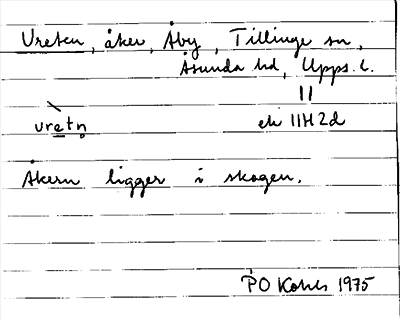 Vreten, åker, Åby, Tillinge sn,
Åsunda hd, Upps. l.
11
vretn̥ ek 11H2d
Åkern ligger i skogen.
PO Kohls 1975